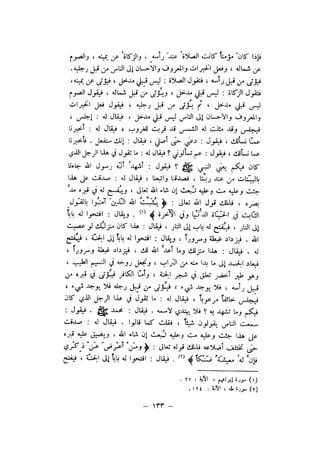 فإذا كان مؤمناً كانت الصلاة عند رأسه ، والزكاة عن يمينه ، والصوم
عن شماله ، وفعل الخيرات والمعروف والاحسان إلى الناس من قبل رجليه .
فيؤتى من قبل رأسه ، فتقول الصلاة : ليس قِبلي مدخل ، فيؤتى عن يمينه ،
فتقول الزكاة : ليس قبلي مدخل ، ويؤتى من قبل شماله ، فيقول الصوم
ليس قبلي مدخل ، ثم يؤتى من قبل رجليه ، فيقول فعل الخيرات
والمعروف والاحسان إلى الناس ليس قبلي مدخل ، فيقال له : إجلس ،
فيجلس وقد مثلت له الشمس قد قربت للغروب ، فيقال له : أخبرنا
عمّا نسألك ، فيقول : دعني حتى أصلي ، فيقال : إنك ستفعل . فأخبرنا
عما نسألك ، فيقول : عم تسألوني ؟ فيقال له : ما تقول في هذا الرجل الذي
كان فيكم يعني النبي ﷺ ؟ فيقول : أشهد أنه رسول الله جاءنا
بالبينات من عند ربنا ، فصدقنا واتبعنا ، فيقال له : صدقت على هذا
جئت وعليه مت وعليه تبعث إن شاء الله تعالى ، ويفسح له في قبره مد
بصره ، فذلك قول الله تعالى : ﴿ يُثَبِّتُ اللهُ الَّذينَ آمَنُوا بالقَوْلِ
الثّابت في الحَيَاة الدُّنْيا وفي الآخرة ﴾ (١) . ويقال : افتحوا له باباً
إلى النار ، فيفتح له باب إلى النار ، فيقال : هذا كان منزلك لو عصيت
الله . فيزداد غبطة وسروراً ، ويقال : افتحوا له باباً إلى الجنة ، فيفتح
له . فيقال : هذا منزلك وما أعد الله لك ، فيزداد غبطة وسروراً ،
فيعاد الجسد إلى ما بدا منه من التراب ، وتجعل روحه في النسيم الطيب ،
وهو طير أخضر تعلق في شجر الجنة ، وأمّا الكافر فيؤتى في قبره من
قبل رأسه ، فلا يوجد شيء ، فيؤتى من قبل رجله فلا يوجد شيء ،
فيجلس خائفاً مرعوباً ، فيقال له : ما تقول في هذا الرجل الذي كان
فيكم وما تشهد به ؟ فلا يهتدي لاسمه . فيقال : محمد ﷺ . فيقول :
سمعت الناس يقولون شيئاً ، فقلت كما قالوا . فيقال له : صدقت
على هذا جئت وعليه مت وعليه تبعث إن شاء الله . ويضيق عليه قبره
حتى تختلف أضلاعه فذلك قوله تعالى : ﴿ ومَنْ أعرَضَ عَنْ ذِكْري
فإنَّ لَهُ مَعيشَةً ضَنْكاً ﴾ (٢) . فيقال : افتحوا له باباً إلى الجنّة ، فيفتح
(١) سورة إبراهيم ، الآية : ٢٧ .
(٢) سورة طه ، الآية : ١٢٤ .
– ١٣٣ –